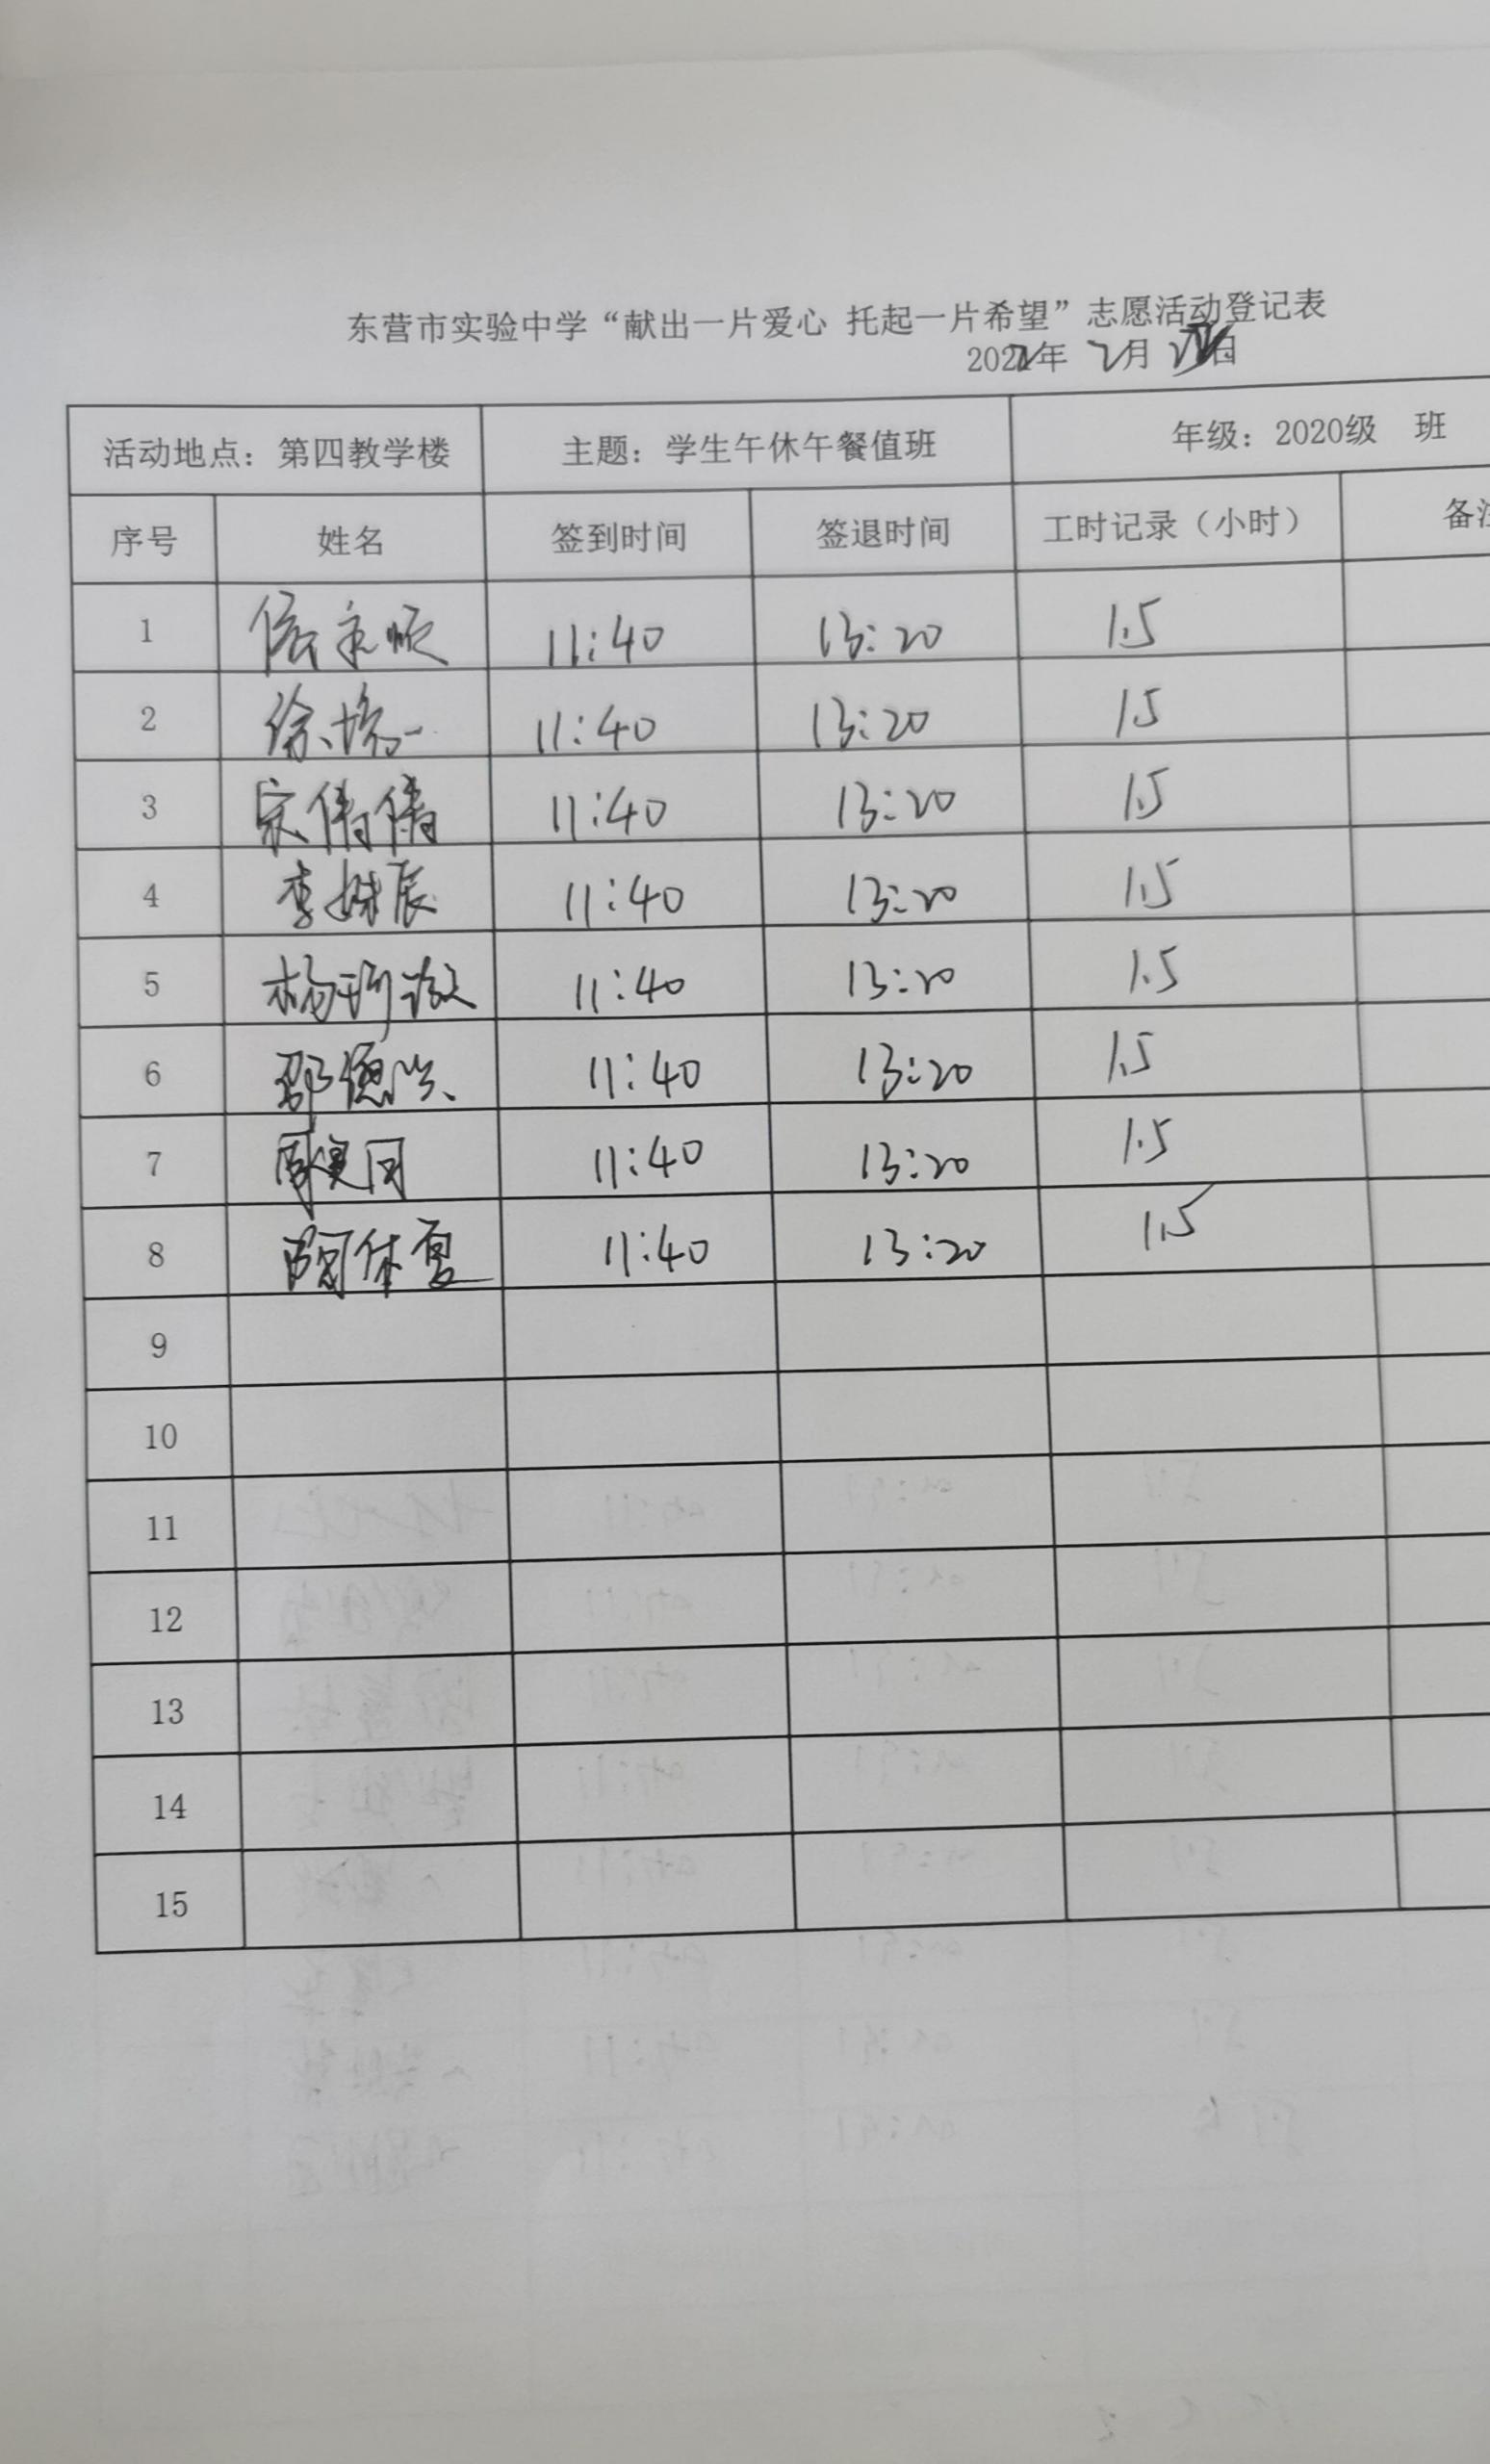 东营市实验中学“献出一片爱心 托起一片希望”志愿活动登记表
2022年 2月 日
活动地点：第四教学楼 主题：学生午休午餐值班 年级：2020级 班
序号 姓名 签到时间 签退时间 工时记录（小时） 备注
1 11:40 13:20 1.5
2 徐 11:40 13:20 1.5
3 宋倩倩 11:40 13:20 1.5
4 李姝辰 11:40 13:20 1.5
5 杨 11:40 13:20 1.5
6 邵德 11:40 13:20 1.5
7 周 11:40 13:20 1.5
8 11:40 13:20 1.5
9
10
11
12
13
14
15